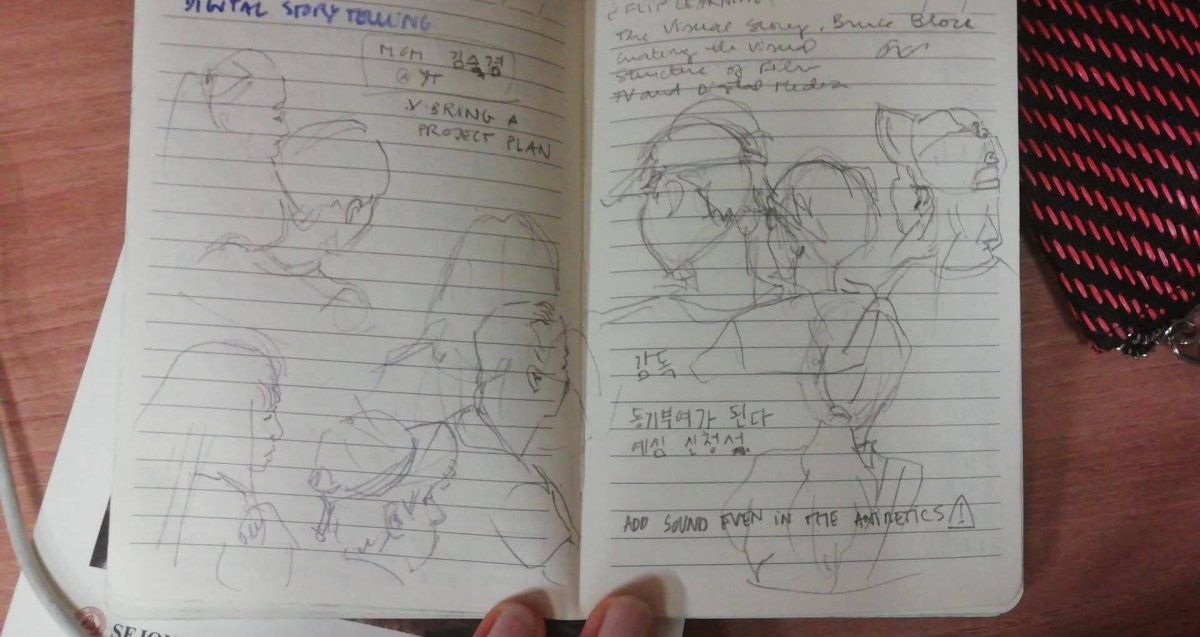 DIGITAL STORYTELLING
MGM 김승경
@ YT
V. BRING A
PROJECT PLAN
¿FLIP LEARNING?
The Visual Story, Bruce Block
Creating the Visual
Structure of Film
TV and Digital Media
감독
동기부여가 된다
예심 신청서
ADD SOUND EVEN IN THE
SEJON